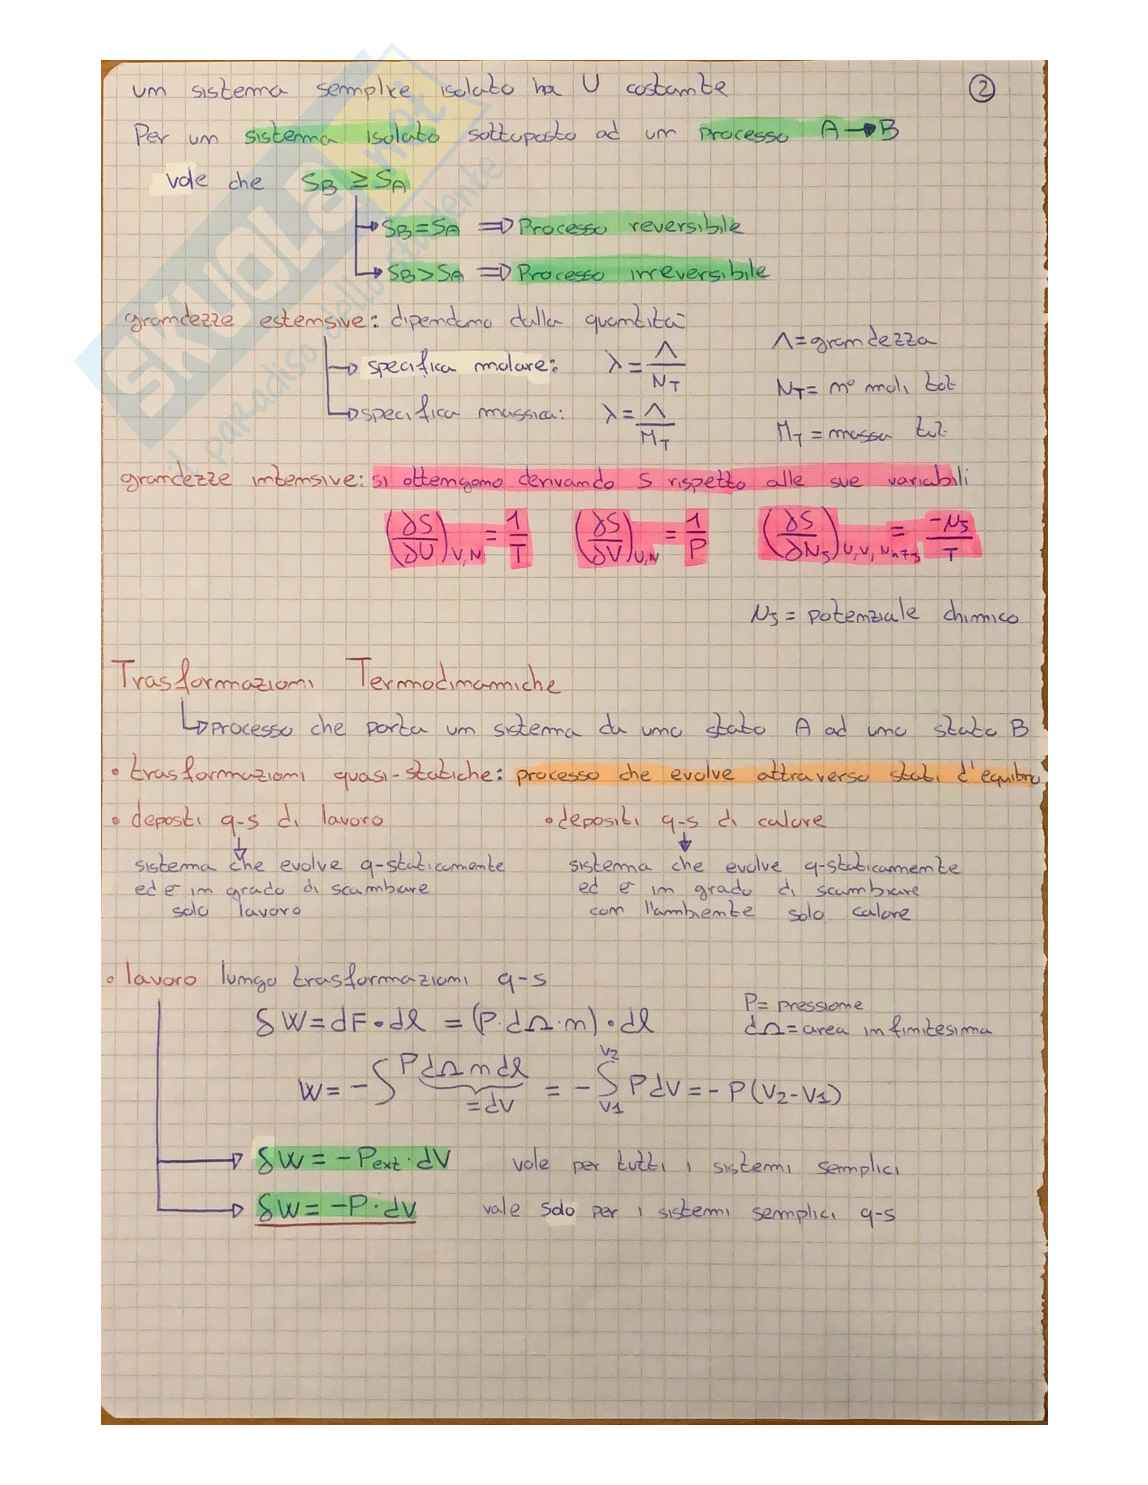 um sistema semplice isolato ha U costante
②
Per un sistema isolato sottoposto ad un processo A→B
vale che SB ≥ SA
SB = SA ⇒ Processo reversibile
SB > SA ⇒ Processo irreversibile
grandezze estensive: dipendono dalla quantità
Λ = grandezza
specifica molare: λ = Λ/NT
NT = n° moli tot
specifica massica: λ = Λ/MT
MT = massa tot
grandezze intensive: si ottengono derivando S rispetto alle sue variabili
(∂S/∂U)V,N = 1/T (∂S/∂V)U,N = 1/P (∂S/∂NJ)U,V,Nn≠J = -μJ/T
μJ = potenziale chimico
Trasformazioni Termodinamiche
processo che porta un sistema da uno stato A ad uno stato B
• trasformazioni quasi-statiche: processo che evolve attraverso stati d'equilibrio
• depositi q-s di lavoro
• depositi q-s di calore
sistema che evolve q-staticamente
ed è in grado di scambiare
solo lavoro
sistema che evolve q-staticamente
ed è in grado di scambiare
con l'ambiente solo calore
• lavoro lungo trasformazioni q-s
P = pressione
δW = dF • dl = (P · dΩ · n) • dl
dΩ = area infinitesima
W = -∫ P dΩ n dl = -∫ V1 V2 P dV = -P(V2-V1)
= dV
δW = -Pext · dV vale per tutti i sistemi semplici
δW = -P · dV vale solo per i sistemi semplici q-s
SKUOLA.net
il paradiso dello studente